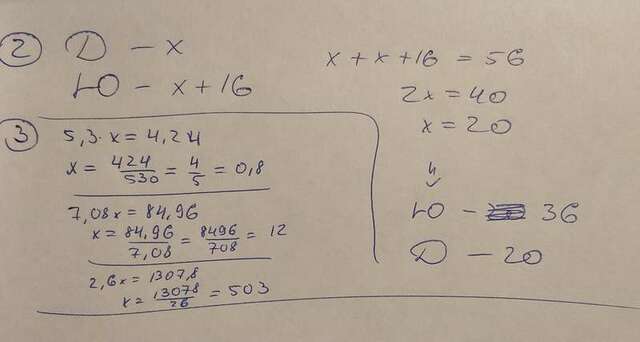 2 Д – x
Ю – x + 16
x + x + 16 = 56
2x = 40
x = 20
Ю – 36
Д – 20
3 5,3·x = 4,24
x = 424/530 = 4/5 = 0,8
7,08x = 84,96
x = 84,96/7,08 = 8496/708 = 12
2,6x = 1307,8
x = 13078/26 = 503